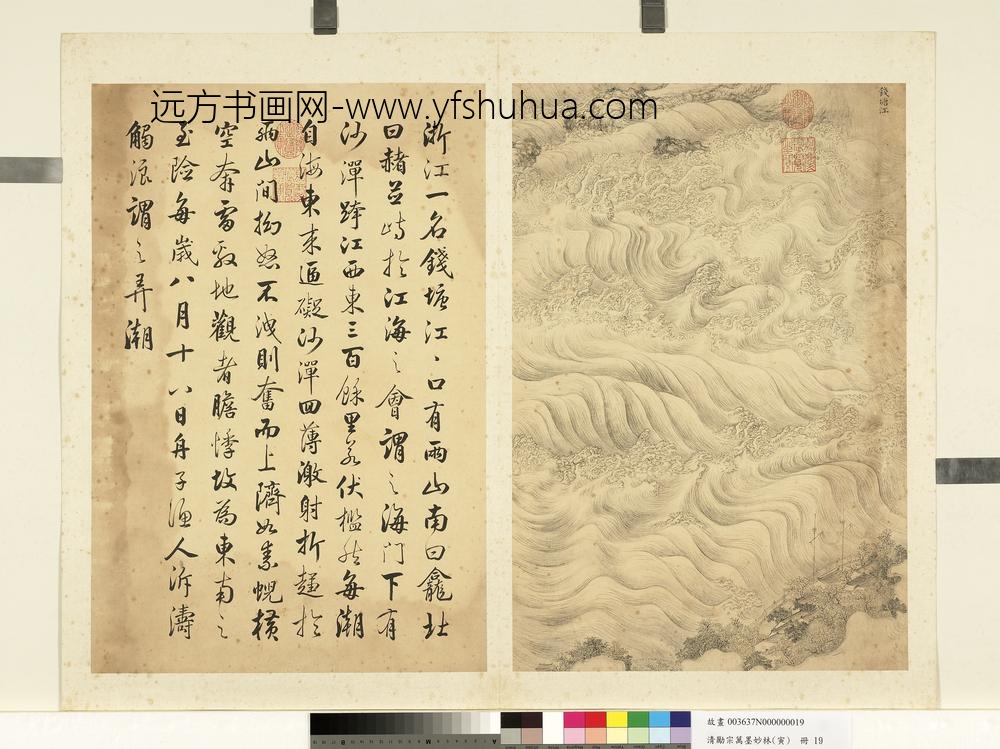 远方书画网-www.yfshuhua.com
錢塘江
浙江一名錢塘江、口有兩山南曰龕北
曰赭並峙於江海之會謂之海門下有
沙潬跨江西東三百餘里若伏檻然每潮
自海東來逼礙沙潬回薄激射折趨於
兩山間拗怒不洩則奮而上隮如素幌橫
空奔雷殷地觀者瞻悸故為東南之
至險每歲八月十八日舟子漁人泝濤
觸浪謂之弄潮
故畫 003637N000000019
清勵宗萬墨妙林(寅) 冊 19